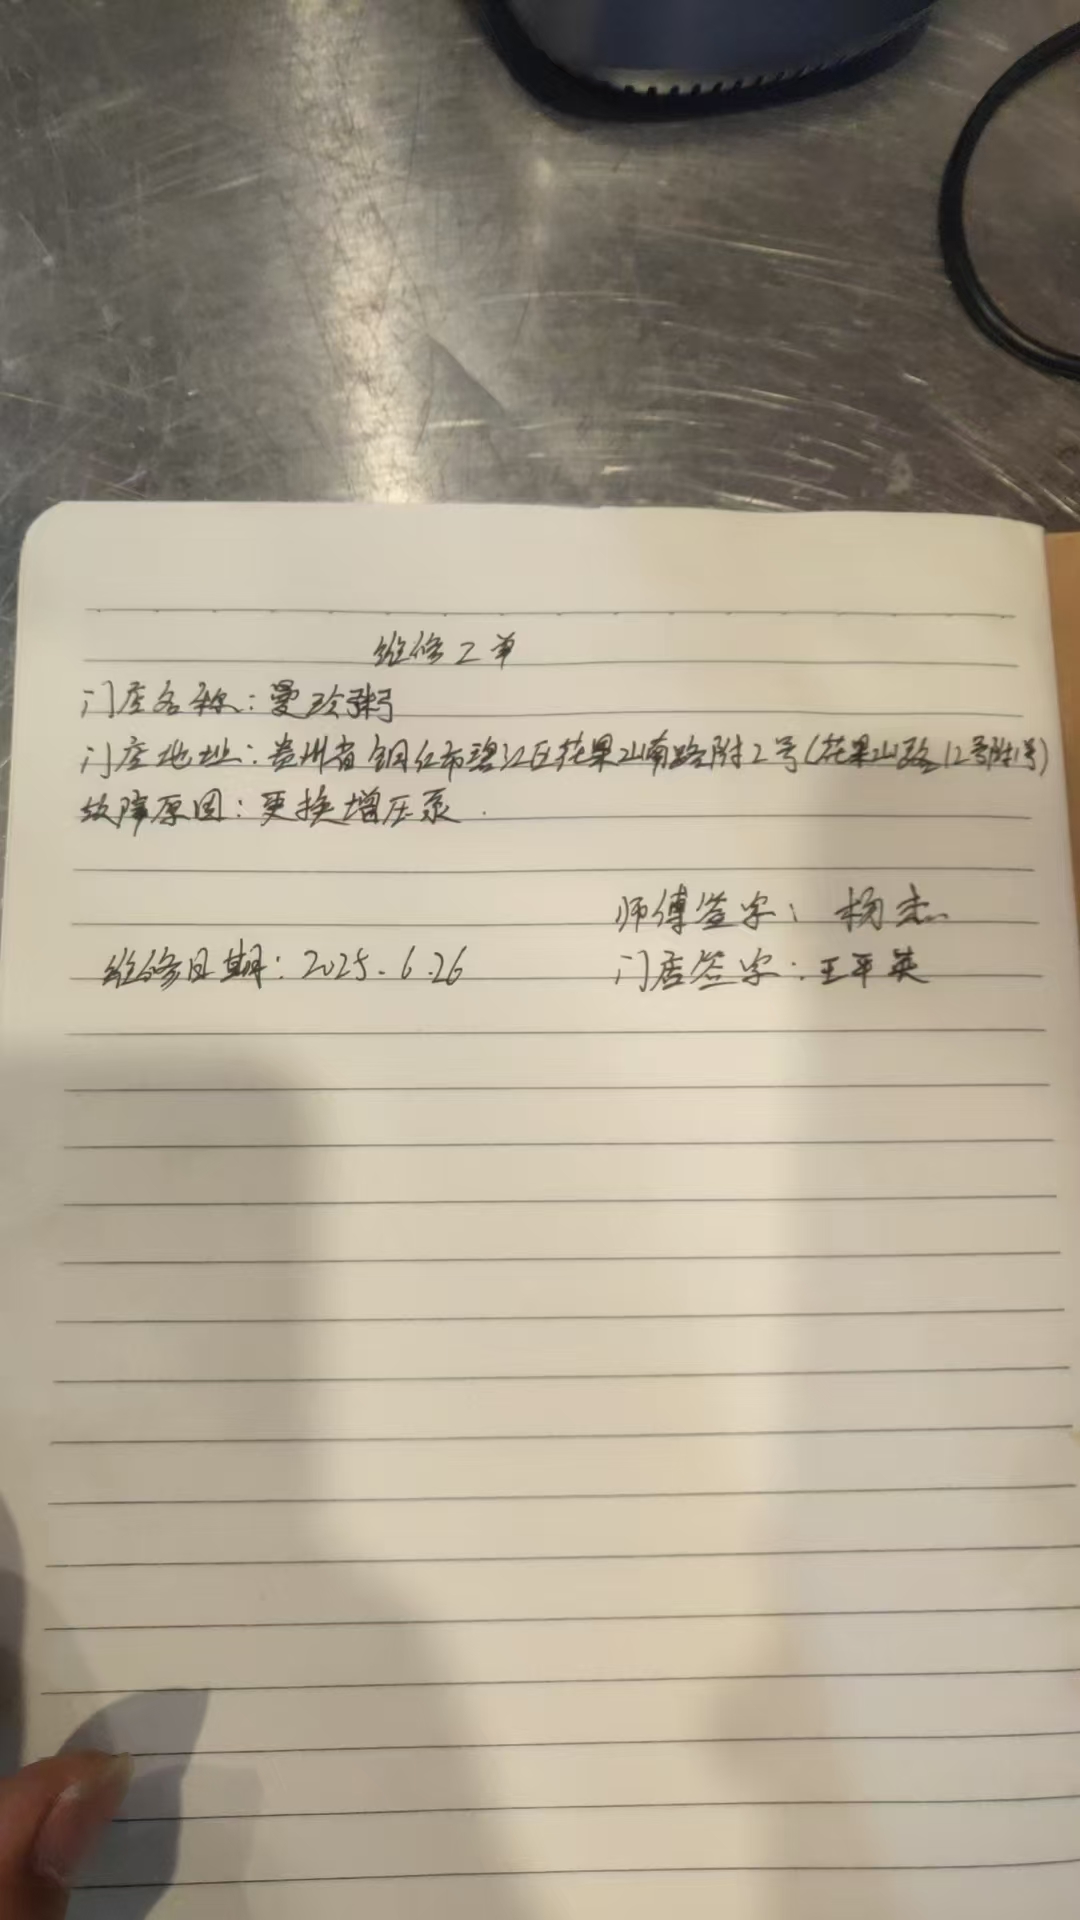 维修工单
门店名称：曼玲粥
门店地址：贵州省铜仁市碧江区花果山南路附2号(花果山路12号附1号)
故障原因：更换增压泵.
师傅签字：杨杰
维修日期：2025.6.26
门店签字：王平英